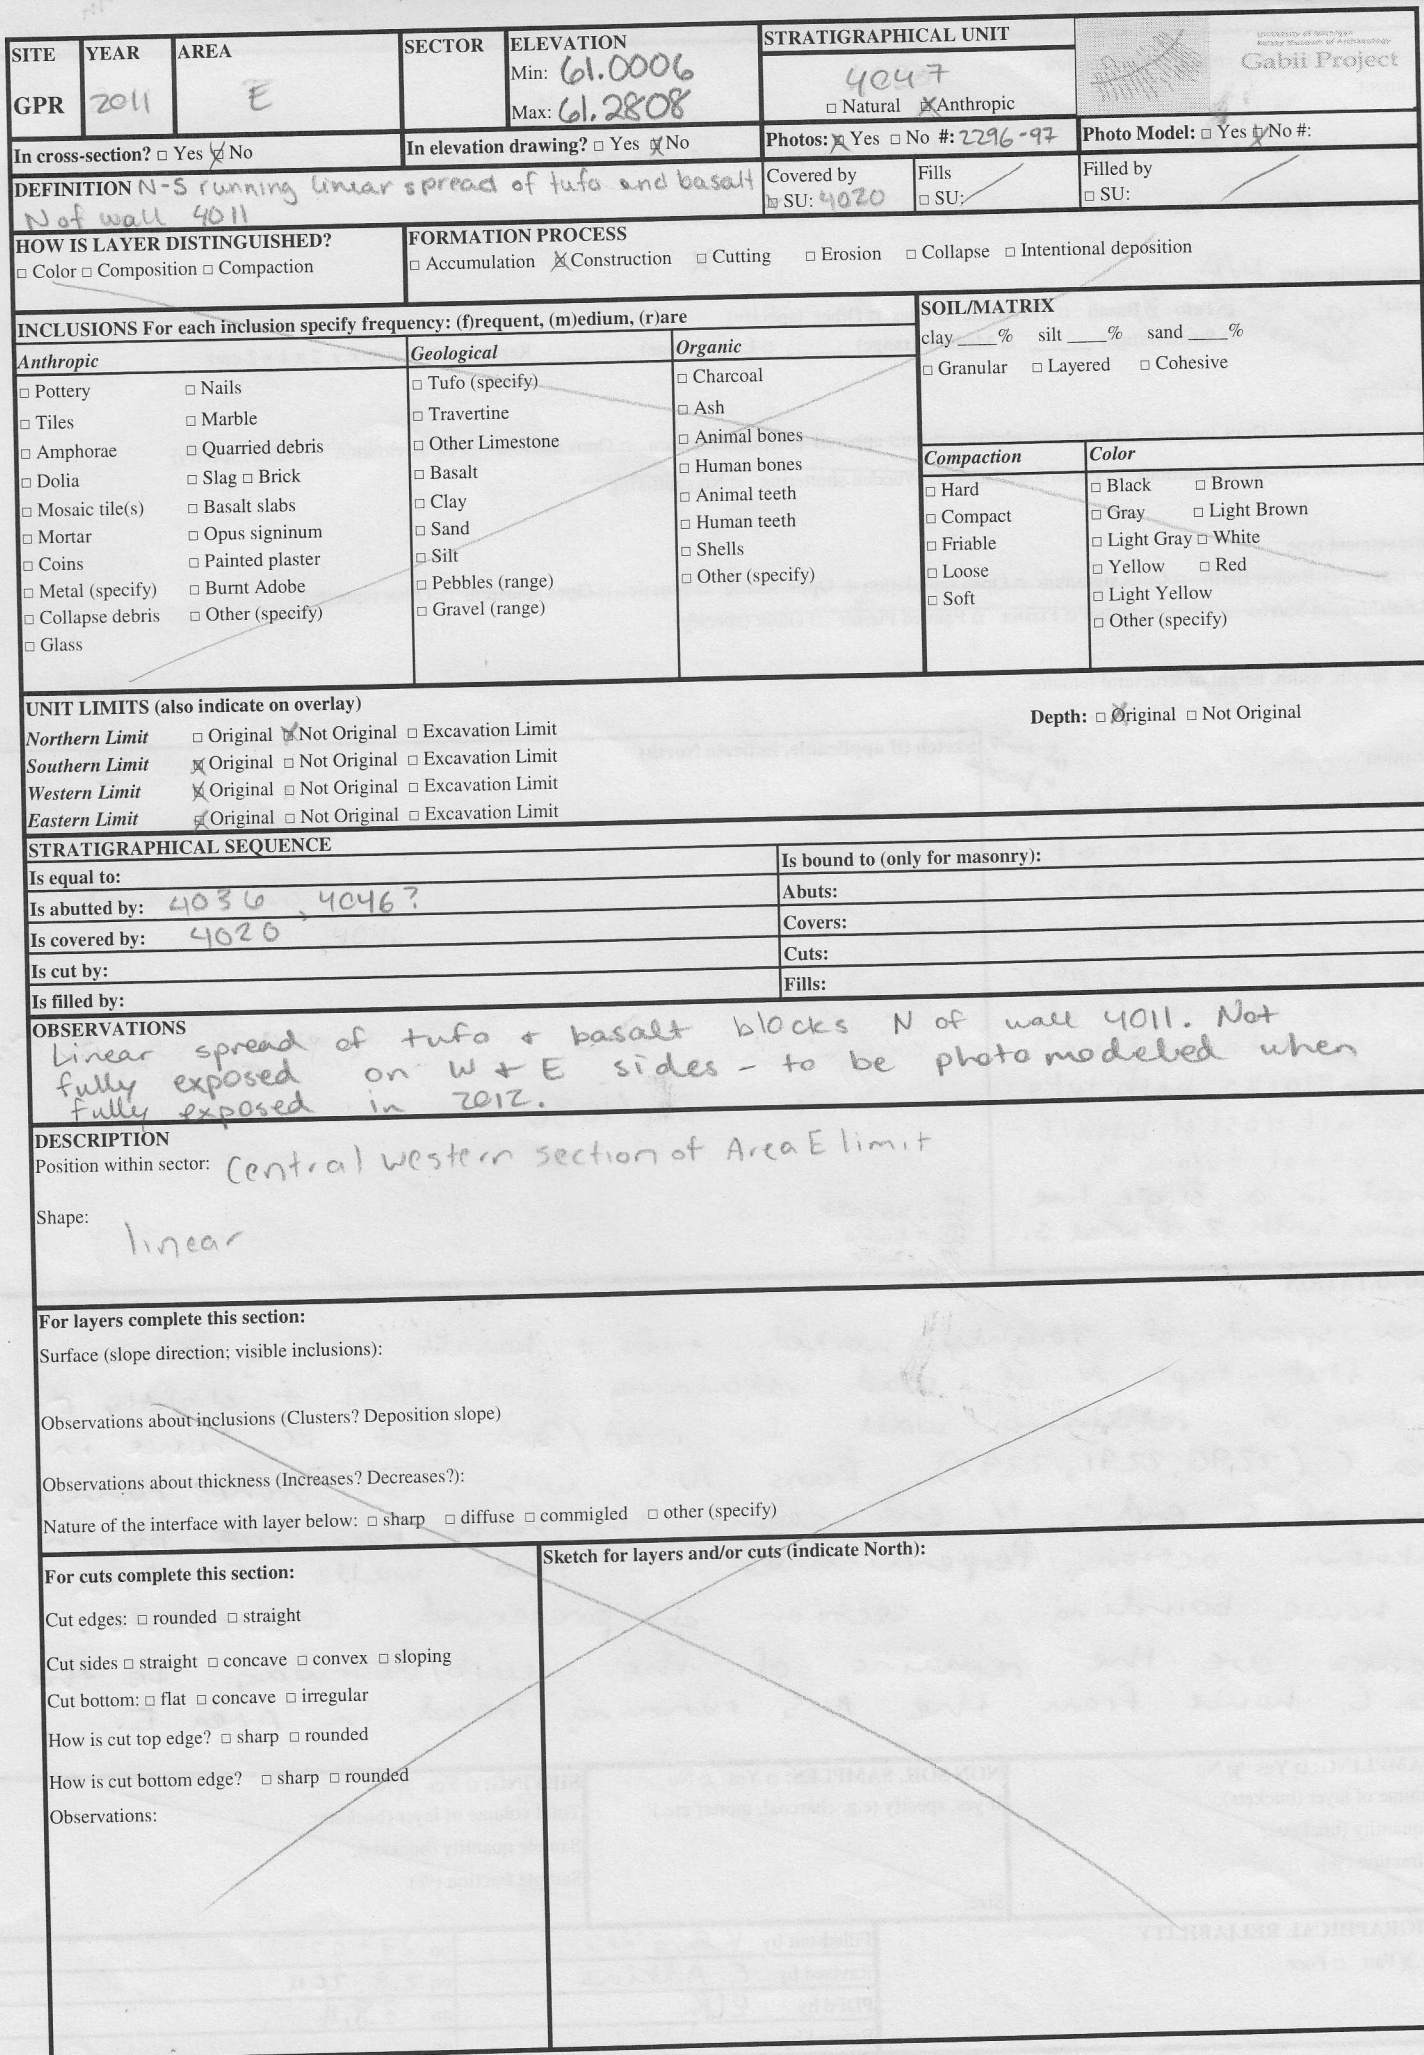 SITE YEAR AREA SECTOR ELEVATION STRATIGRAPHICAL UNIT
University of Michigan
Kelsey Museum of Archaeology
Gabii Project
GPR 2011 E Min: 61.0006 4047
Max: 61.2808 □ Natural ☒ Anthropic
In cross-section? □ Yes ☒ No In elevation drawing? □ Yes ☒ No Photos: ☒ Yes □ No #: 2296-97 Photo Model: □ Yes ☒ No #:
DEFINITION N-S running linear spread of tufo and basalt
N of wall 4011
Covered by Fills Filled by
☒ SU: 4020 □ SU: □ SU:
HOW IS LAYER DISTINGUISHED? FORMATION PROCESS
□ Color □ Composition □ Compaction □ Accumulation ☒ Construction □ Cutting □ Erosion □ Collapse □ Intentional deposition
INCLUSIONS For each inclusion specify frequency: (f)requent, (m)edium, (r)are
Anthropic
□ Pottery □ Nails
□ Tiles □ Marble
□ Amphorae □ Quarried debris
□ Dolia □ Slag □ Brick
□ Mosaic tile(s) □ Basalt slabs
□ Mortar □ Opus signinum
□ Coins □ Painted plaster
□ Metal (specify) □ Burnt Adobe
□ Collapse debris □ Other (specify)
□ Glass
Geological
□ Tufo (specify)
□ Travertine
□ Other Limestone
□ Basalt
□ Clay
□ Sand
□ Silt
□ Pebbles (range)
□ Gravel (range)
Organic
□ Charcoal
□ Ash
□ Animal bones
□ Human bones
□ Animal teeth
□ Human teeth
□ Shells
□ Other (specify)
SOIL/MATRIX
clay ____% silt ____% sand ____%
□ Granular □ Layered □ Cohesive
Compaction
□ Hard
□ Compact
□ Friable
□ Loose
□ Soft
Color
□ Black □ Brown
□ Gray □ Light Brown
□ Light Gray □ White
□ Yellow □ Red
□ Light Yellow
□ Other (specify)
UNIT LIMITS (also indicate on overlay)
Northern Limit □ Original ☒ Not Original □ Excavation Limit
Southern Limit ☒ Original □ Not Original □ Excavation Limit
Western Limit ☒ Original □ Not Original □ Excavation Limit
Eastern Limit ☒ Original □ Not Original □ Excavation Limit
Depth: ☒ Original □ Not Original
STRATIGRAPHICAL SEQUENCE
Is equal to:
Is abutted by: 4036, 4046?
Is covered by: 4020
Is cut by:
Is filled by:
Is bound to (only for masonry):
Abuts:
Covers:
Cuts:
Fills:
OBSERVATIONS
Linear spread of tufo + basalt blocks N of wall 4011. Not
fully exposed on W + E sides - to be photomodeled when
fully exposed in 2012.
DESCRIPTION
Position within sector: Central western section of Area E limit
Shape:
linear
For layers complete this section:
Surface (slope direction; visible inclusions):
Observations about inclusions (Clusters? Deposition slope)
Observations about thickness (Increases? Decreases?):
Nature of the interface with layer below: □ sharp □ diffuse □ commigled □ other (specify)
For cuts complete this section:
Cut edges: □ rounded □ straight
Cut sides □ straight □ concave □ convex □ sloping
Cut bottom: □ flat □ concave □ irregular
How is cut top edge? □ sharp □ rounded
How is cut bottom edge? □ sharp □ rounded
Observations:
Sketch for layers and/or cuts (indicate North):